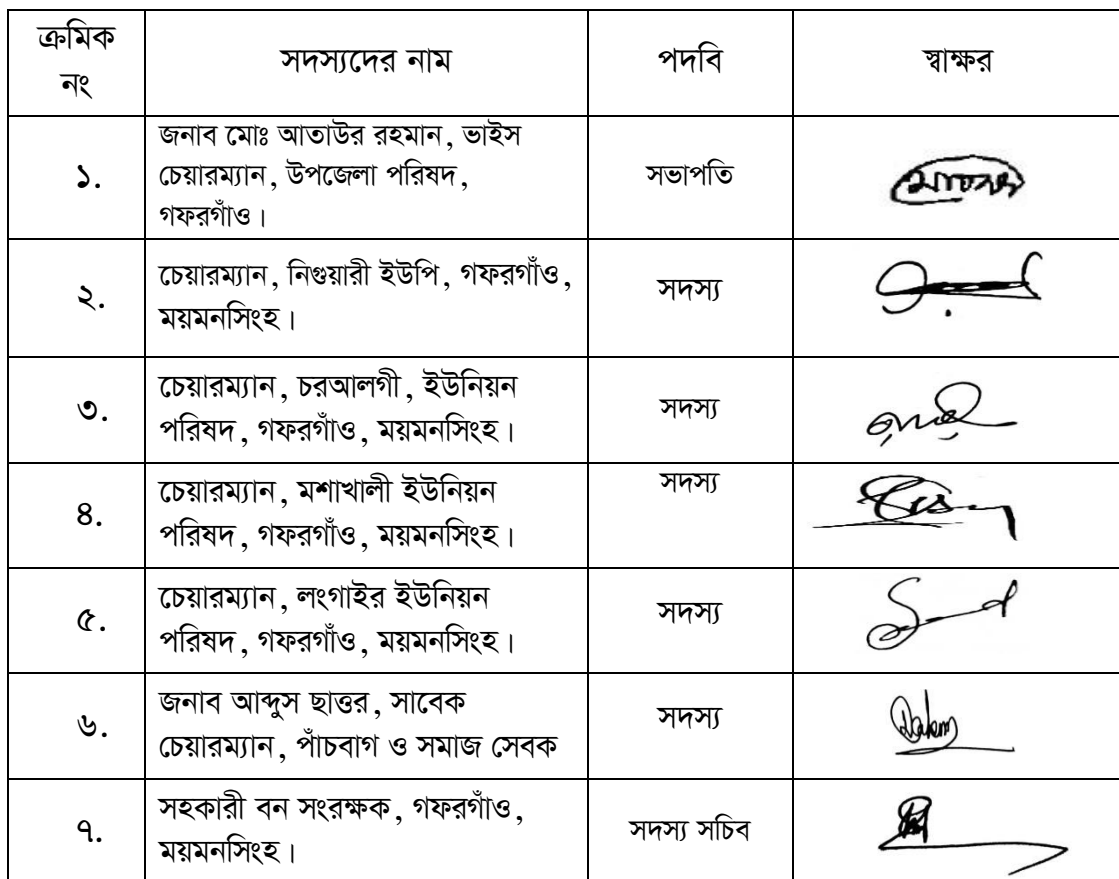 ক্রমিক
নং
সদস্যদের নাম
পদবি
স্বাক্ষর
১.
জনাব মোঃ আতাউর রহমান, ভাইস
চেয়ারম্যান, উপজেলা পরিষদ,
গফরগাঁও।
সভাপতি
২.
চেয়ারম্যান, নিগুয়ারী ইউপি, গফরগাঁও,
ময়মনসিংহ।
সদস্য
৩.
চেয়ারম্যান, চরআলগী, ইউনিয়ন
পরিষদ, গফরগাঁও, ময়মনসিংহ।
সদস্য
৪.
চেয়ারম্যান, মশাখালী ইউনিয়ন
পরিষদ, গফরগাঁও, ময়মনসিংহ।
সদস্য
৫.
চেয়ারম্যান, লংগাইর ইউনিয়ন
পরিষদ, গফরগাঁও, ময়মনসিংহ।
সদস্য
৬.
জনাব আব্দুস ছাত্তর, সাবেক
চেয়ারম্যান, পাঁচবাগ ও সমাজ সেবক
সদস্য
৭.
সহকারী বন সংরক্ষক, গফরগাঁও,
ময়মনসিংহ।
সদস্য সচিব